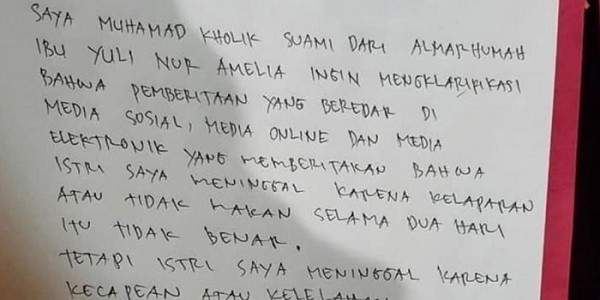 SAYA MUHAMAD KHOLIK SUAMI DARI ALMARHUMAH
IBU YULI NUR AMELIA INGIN MENGKLARIPIKASI
BAHWA PEMBERITAAN YANG BEREDAR DI
MEDIA SOSIAL, MEDIA ONLINE DAN MEDIA
ELEKTRONIK YANG MEMBERITAKAN BAHWA
ISTRI SAYA MENINGGAL KARENA KELAPARAN
ATAU TIDAK MAKAN SELAMA DUA HARI
ITU TIDAK BENAR.
TETAPI ISTRI SAYA MENINGGAL KARENA
KECAPEAN ATAU KELELAHAN